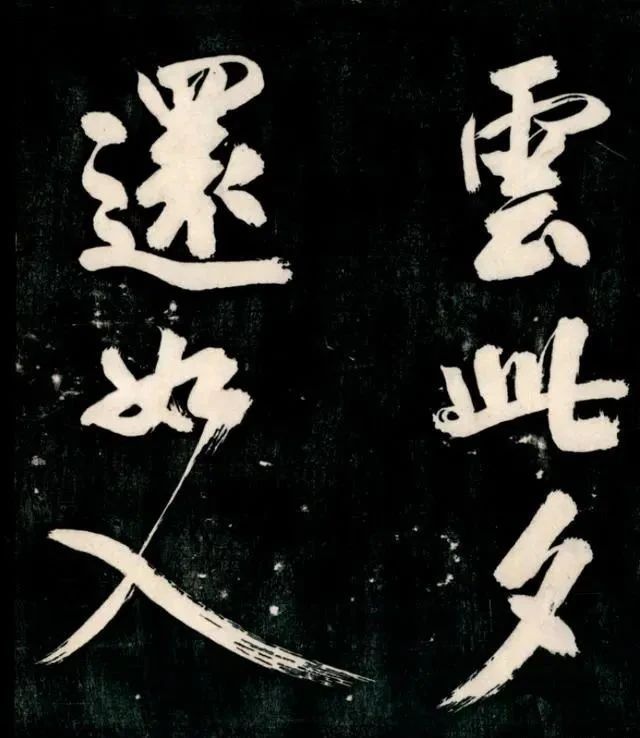 雲此夕
還如人